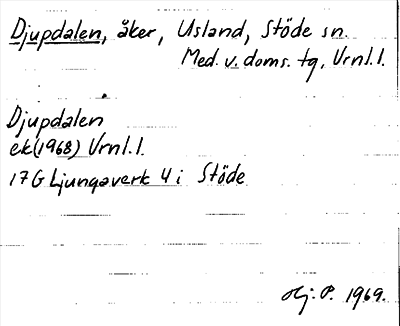 Djupdalen, åker, Usland, Stöde sn.
Med. v. doms. tg, Vrnl. l.
Djupdalen
ek (1968) Vrnl. l.
17G Ljungaverk 4 i Stöde
Hj. P. 1969.